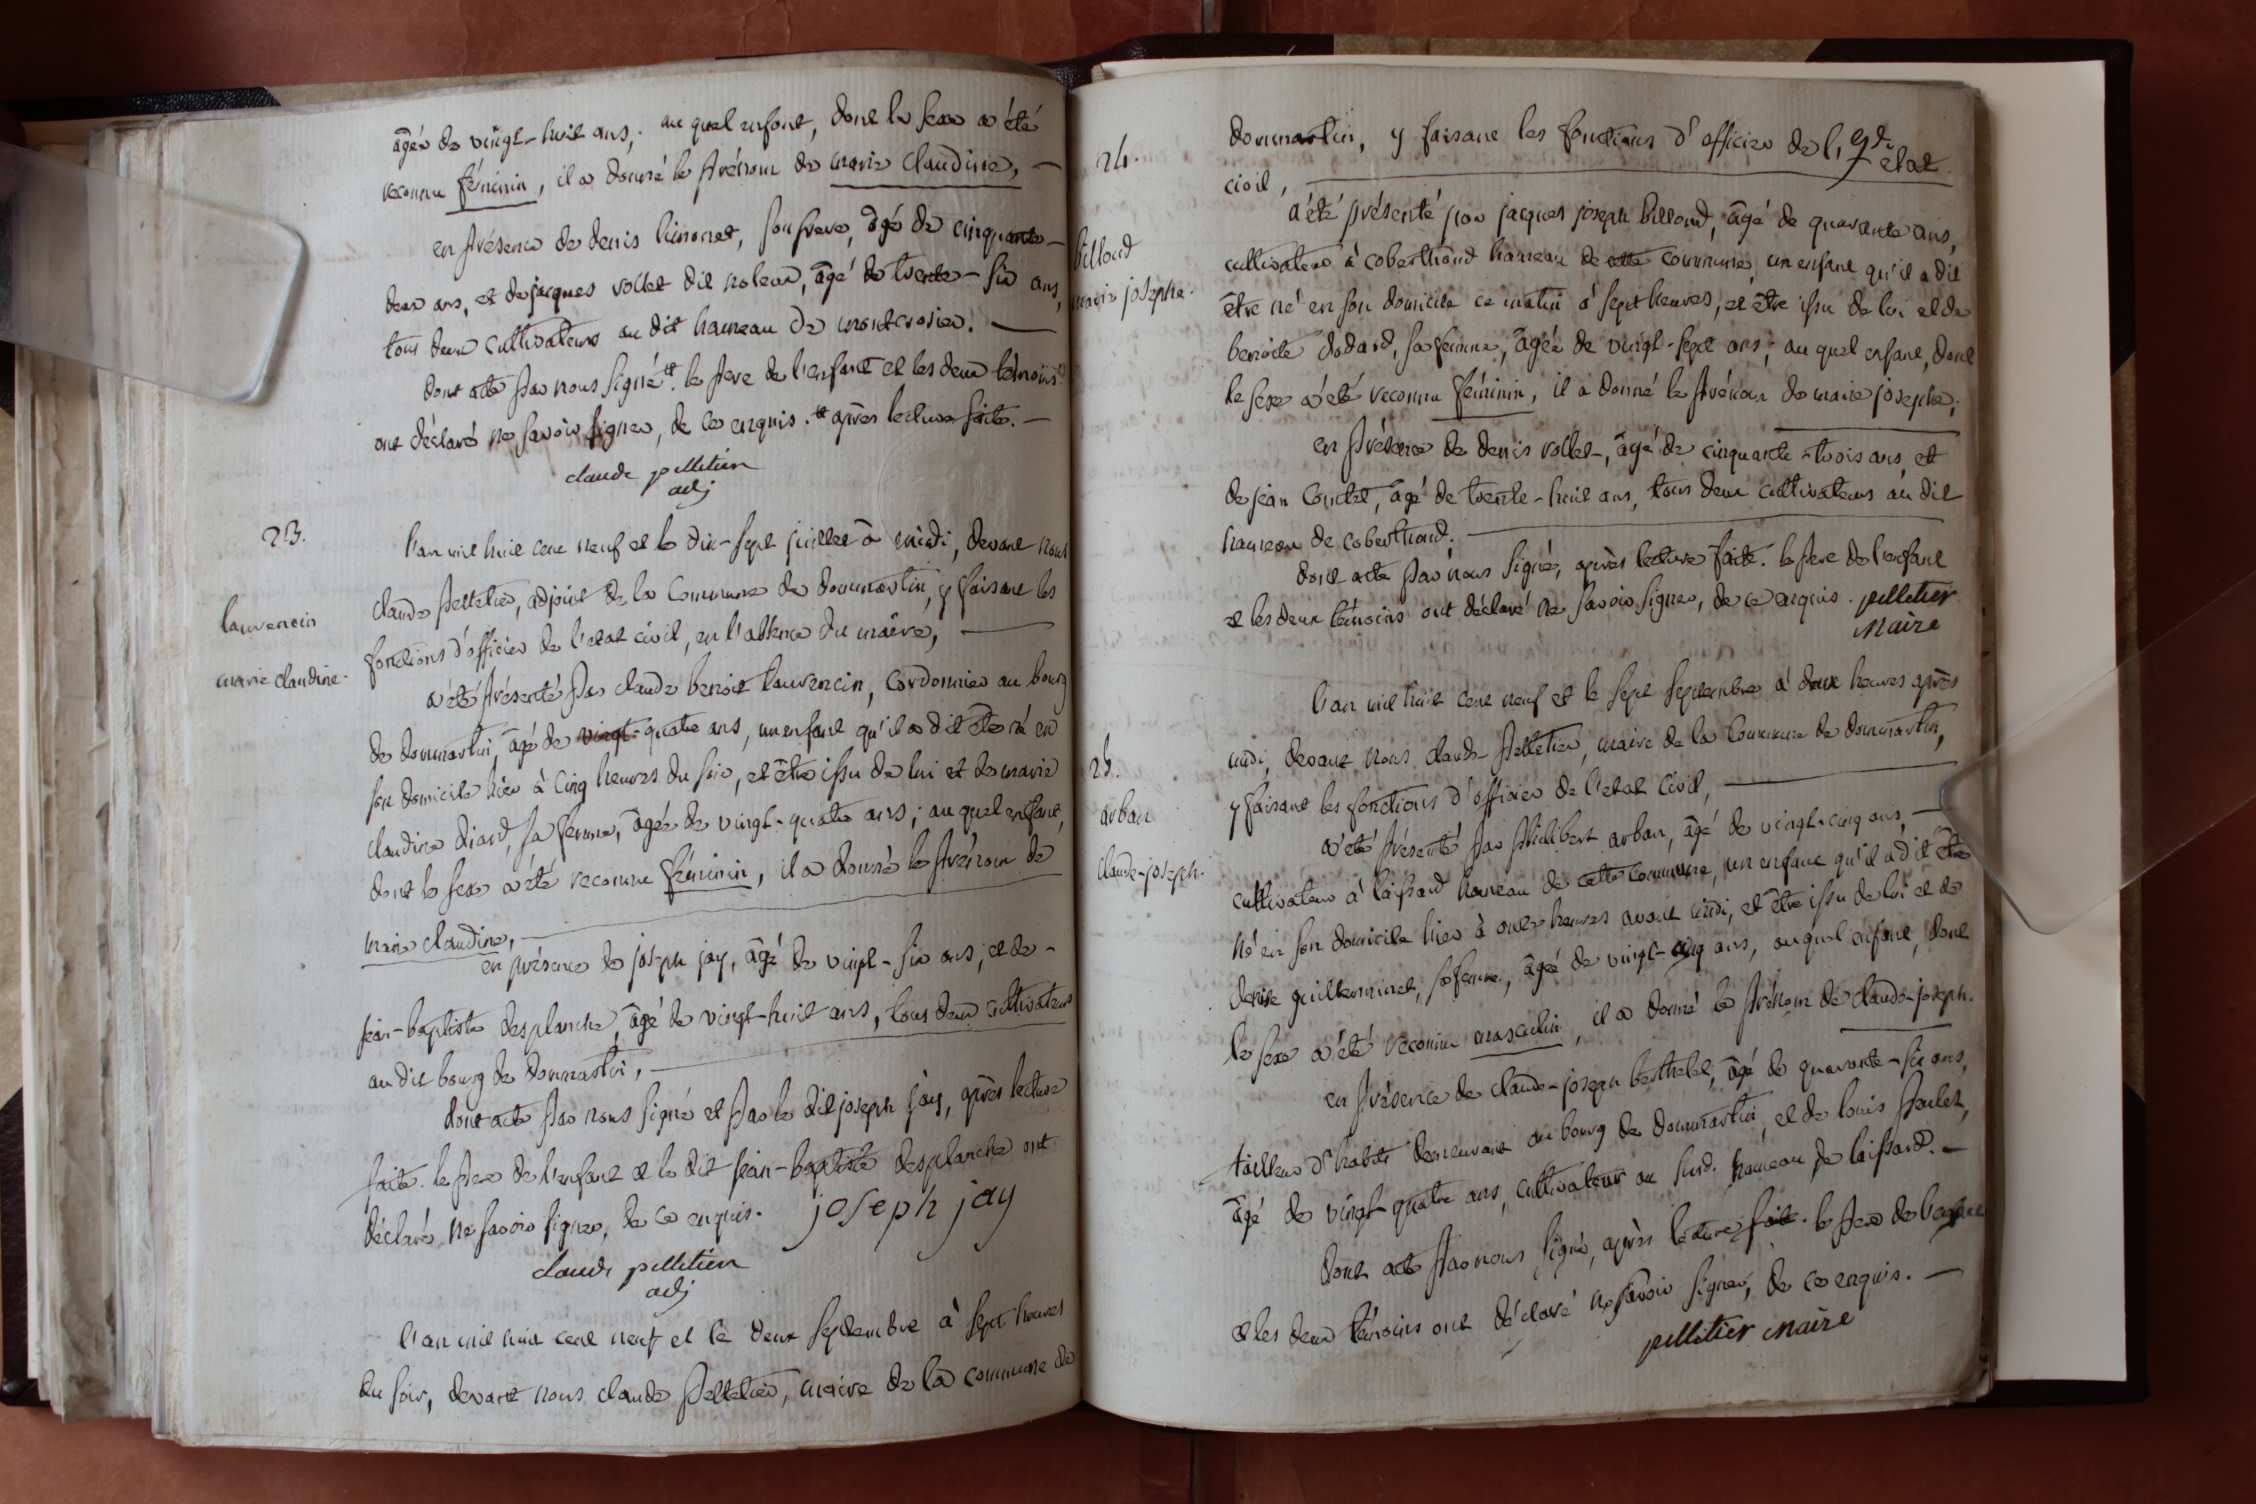 âgée de vingt-huit ans; au quel enfant, dont le sexe a été
reconnu féminin, il a donné le prénom de marie claudine,
en présence de denis limonet, son frere, âgé de cinquante-
deux ans, et de jacques vollet dit noleur, âgé de trente-six ans,
tous deux cultivateurs au dit hameau de montcrosier.
dont acte par nous signé. le pere de l'enfant et les deux témoins
ont déclaré ne savoir signer, de ce enquis. après lecture faite.
claude pelletier
adj
23.
laurencin
marie claudine.
l'an mil huit cent neuf et le dix-sept juillet à midi, devant nous
claude pelletier, adjoint de la commune de dommartin, y faisant les
fonctions d'officier de l'etat civil, en l'absence du maire,
a été présenté par claude benoit laurencin, cordonnier au bourg
de dommartin, âgé de vingt-quatre ans, un enfant qu'il a dit être né en
son domicile hier à cinq heures du soir, et être issu de lui et de marie
claudine diard, sa femme, âgée de vingt-quatre ans; au quel enfant,
dont le sexe a été reconnu féminin, il a donné le prénom de
marie claudine,
en présence de joseph jay, âgé de vingt-six ans, et de-
jean-baptiste desplanche, âgé de vingt-huit ans, tous deux cultivateurs
au dit bourg de dommartin,
dont acte par nous signé et par le dit joseph jay, après lecture
faite. le pere de l'enfant et le dit jean-baptiste desplanche ont
déclaré ne savoir signer, de ce enquis. joseph jay
claude pelletier
adj
l'an mil huit cent neuf et le deux septembre à sept heures
du soir, devant nous claude pelletier, maire de la commune de
24.
billoud
marie josephe.
dommartin, y faisant les fonctions d'officier de l'etat
civil,
a été présenté par jacques joseph billoud, âgé de quarante ans,
cultivateur à coberthoud hameau de cette commune, un enfant qu'il a dit
être né en son domicile ce matin à sept heures, et être issu de lui et de
benoite dodard, sa femme, âgée de vingt-sept ans; au quel enfant, dont
le sexe a été reconnu féminin, il a donné le prénom de marie josephe;
en présence de denis vollet, âgé de cinquante-trois ans, et
de jean contet, âgé de trente-huit ans, tous deux cultivateurs au dit
hameau de coberthoud.
dont acte par nous signé, après lecture faite. le pere de l'enfant
et les deux témoins ont déclaré ne savoir signer, de ce enquis. pelletier
maire
25.
arban
claude-joseph.
l'an mil huit cent neuf et le sept septembre à deux heures après
midi, devant nous claude pelletier, maire de la commune de dommartin,
y faisant les fonctions d'officier de l'etat civil,
a été présenté par philibert arban, âgé de vingt-cinq ans,
cultivateur à laissard hameau de cette commune, un enfant qu'il a dit être
né en son domicile hier à onze heures avant midi, et être issu de lui et de
denise guillerminet, sa femme, âgée de vingt-cinq ans, au quel enfant, dont
le sexe a été reconnu masculin, il a donné le prénom de claude-joseph.
en présence de claude-joseph berthelet, âgé de quarante-six ans,
tailleur d'habits demeurant au bourg de dommartin, et de louis poulet,
âgé de vingt-quatre ans, cultivateur au susd. hameau de laissard.
dont acte par nous signé, après lecture faite. le pere de l'enfant
et les deux témoins ont déclaré ne savoir signer, de ce enquis.
pelletier maire